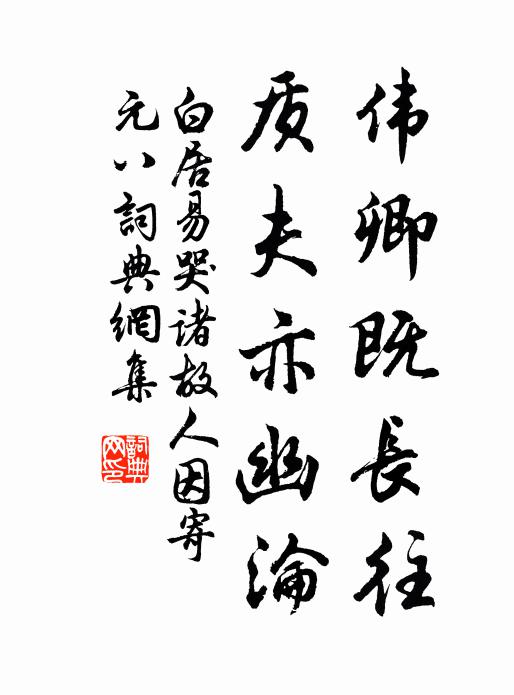 伟卿既長往
质夫亦幽淪
白居易哭诸故人因寄
元八詞典網集
詞典网印